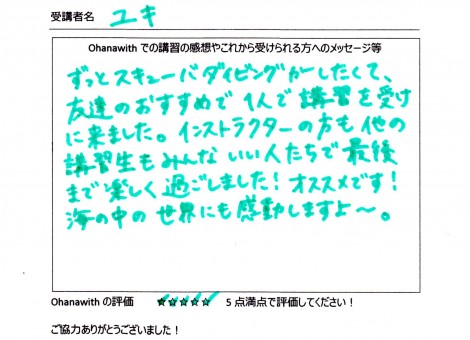 受講者名 ユキ
Ohanawith での講習の感想やこれから受けられる方へのメッセージ等
ずっとスキューバダイビングがしたくて、
友達のおすすめで1人で講習を受け
に来ました。インストラクターの方も他の
講習生もみんないい人たちで最後
まで楽しく過ごしました！オススメです！
海の中の世界にも感動しますよ〜。
Ohanawith の評価 ☆☆☆☆☆ 5点満点で評価してください！
ご協力ありがとうございました！